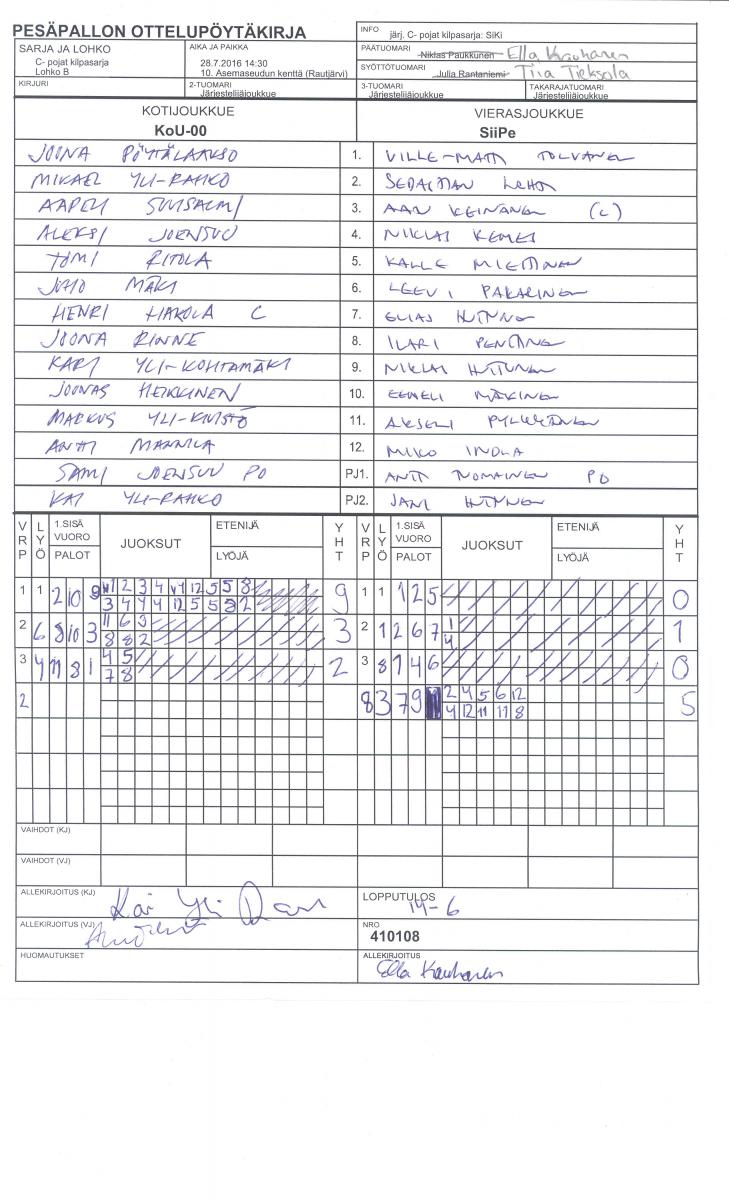 PESÄPALLON OTTELUPÖYTÄKIRJA
INFO järj. C- pojat kilpasarja: SiKi
SARJA JA LOHKO
C- pojat kilpasarja
Lohko B
AIKA JA PAIKKA
28.7.2016 14:30
10. Asemaseudun kenttä (Rautjärvi)
PÄÄTUOMARI Niklas Paukkunen Ella Kauhanen
SYÖTTÖTUOMARI Julia Rantaniemi Tiia Tieksola
KIRJURI
2-TUOMARI
Järjestelijäjoukkue
3-TUOMARI
Järjestelijäjoukkue
TAKARAJATUOMARI
Järjestelijäjoukkue
KOTIJOUKKUE VIERASJOUKKUE
KoU-00 SiiPe
JOONA PÖYTÄLAAKSO 1. VILLE-MATTI TOLVANEN
MIKAEL YLI-RAHKO 2. LEHTI
AAPELI SUUSALMI 3. KEINÄNEN (C)
ALEKSI JOENSUU 4. NIKLAS KEMES
TOMI RITOLA 5. KALLE MIETTINEN
JUHO MÄKI 6. LEEVI PAKARINEN
HENRI HAKOLA C 7. ELIAS HUTTUNEN
JOONA RINNE 8. ILARI PENTTINEN
KARI YLI-KOHTAMÄKI 9. NIKLAS HUTTUNEN
JOONAS HEIKKINEN 10. EEMELI MÄKINEN
MARKUS YLI-KIVISTÖ 11. AKSELI PYLKKÄNEN
ANTTI MANNILA 12. MIKO INOLA
SAMI JOENSUU PO PJ1. ANTTI TUOMAINEN PO
KAI YLI-RAHKO PJ2. JANI HUTTUNEN
VRP LYÖ 1.SISÄ VUORO PALOT JUOKSUT ETENIJÄ LYÖJÄ YHT VRP LYÖ 1.SISÄ VUORO PALOT JUOKSUT ETENIJÄ LYÖJÄ YHT
1 1 2 10 9 1 2 3 4 12 5 5 8 9 1 1 1 2 5 0
3 4 4 4 12 5 5 3 2
2 6 8 10 3 11 6 3 3 2 1 2 6 7 1 1
8 8 2 4
3 4 11 8 1 4 5 2 3 8 1 4 6 0
7 8
2 8 3 7 9 2 4 5 6 12 5
4 12 11 11 8
VAIHDOT (KJ)
VAIHDOT (VJ)
ALLEKIRJOITUS (KJ) Kai Yli-Rahko LOPPUTULOS
14-6
ALLEKIRJOITUS (VJ) NRO
410108
HUOMAUTUKSET ALLEKIRJOITUS
Ella Kauhanen